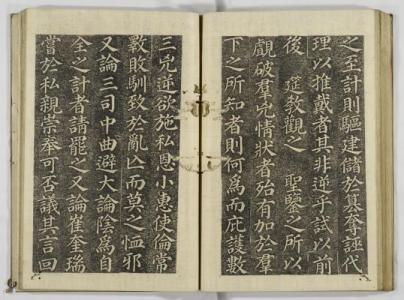 之至計則驅建儲於簒奪誣代
理以推戴者其非逆乎試以前
後 筵敎觀之 聖鑒之所以
覰破羣兇情狀者殆有加於羣
下之所知者則何爲而庇護數
三兇逆欲施私恩小惠使倫常
斁敗馴致於亂亡而莫之恤邪
又論三司中曲避大論陰爲自
全之計者請罷之又論崔奎瑞
嘗於私親崇奉可否議其言回